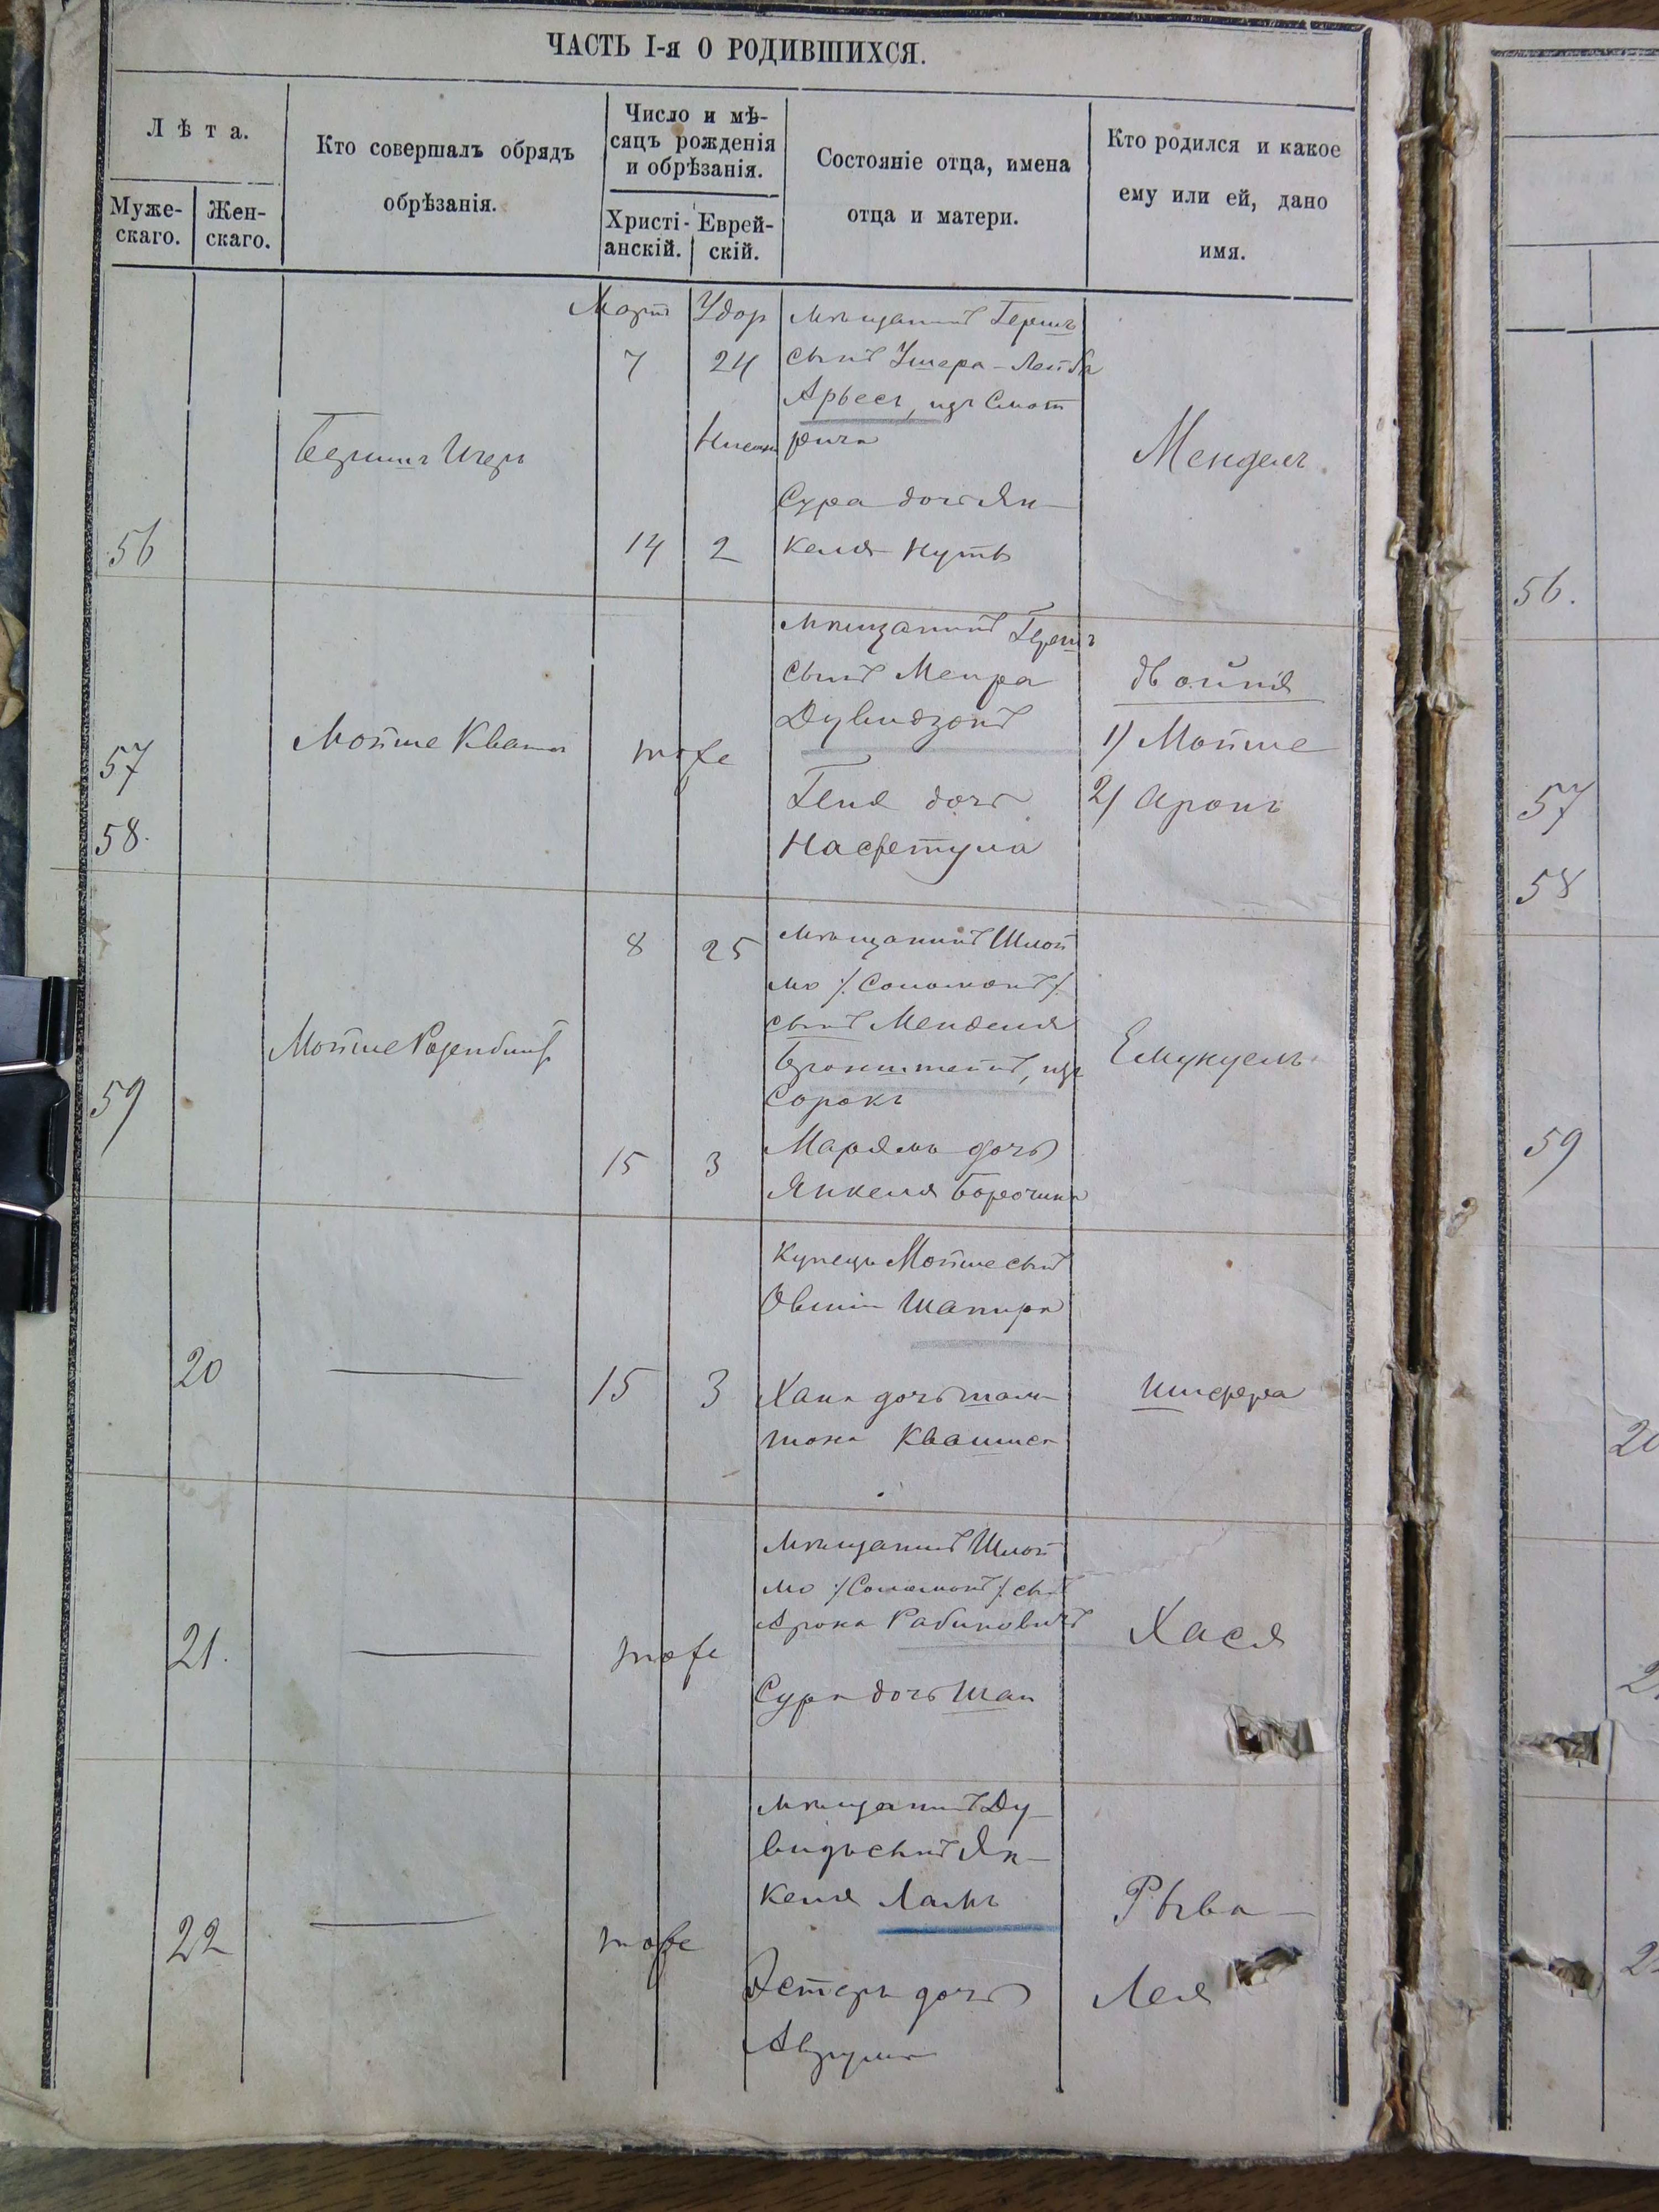 ЧАСТЬ I-я О РОДИВШИХСЯ.
Лѣта.
Муже-
скаго.
Жен-
скаго.
Кто совершалъ обрядъ
обрѣзанія.
Число и мѣ-
сяцъ рожденія
и обрѣзанія.
Христі-
анскій.
Еврей-
скій.
Состояніе отца, имена
отца и матери.
Кто родился и какое
ему или ей, дано
имя.
56
Мартъ
7
14
Удор
24
2
мѣщанинъ Гершъ
сынъ Ушера-Лейба
Арьесъ, изъ Смот
рича
Сура дочь Ян-
келя Нутъ
Мендель
57
58.
Мойше
тоже
мѣщанинъ Гершъ
сынъ Меира
Дувидзонъ
Геня дочь
Насфетула
двойня
1) Мойше
2) Аронъ
59
Мойше
8 25
15 3
мѣщанинъ Шлой
мо /Соломонъ/
сынъ Менделя
Бронштейнъ, изъ
Сорокъ
Марямъ дочь
Янкеля
Емунуель
20
15 3
купецъ Мойше сынъ
Овшія Шапира
Хана дочь
Шифра
21.
тоже
мѣщанинъ Шлой
мо /Соломонъ/ сынъ
Арона Рабиновичъ
Сура дочь
Хася
22
тоже
мѣщанинъ Ду-
видъ сынъ Ян-
келя Ламъ
Эстеръ дочь
Аврума
Рыва-
Лея
56.
57
58
59